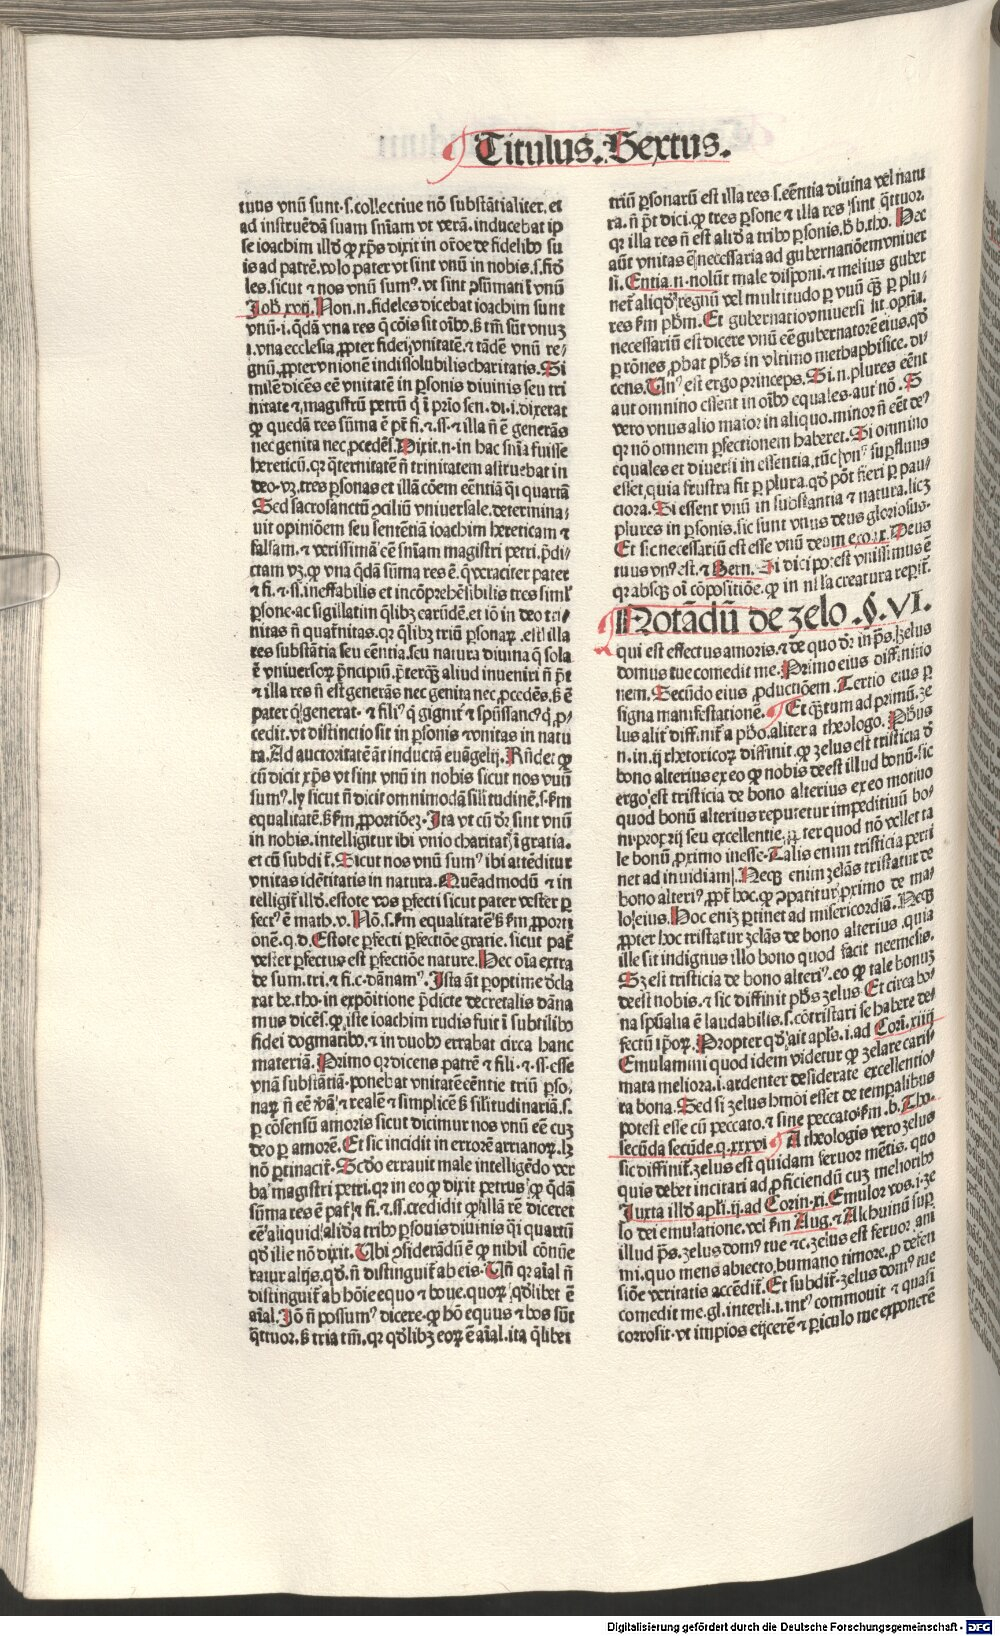 Titulus. Sextus.
tuus vnū sunt. s. collectiue nō substātialiter. et
ad instruēdā suam sn̄iam vt verā. inducebat ip
se ioachim illḋ ꝙ xp̄s dixit in or̄one de fidelibꝰ su
is ad patrē. volo pater vt sint vnū in nobis. s. fide
les. sicut ⁊ nos vnū sumꝰ. vt sint ꝯsūmati ī vnū
Joh̄. xvij. Non. n. fideles dicebat ioachim sunt
vnū. i. q̄dā vna res q̄ cōis sit oībꝰ. sꝫ tm̄ sūt vnuꝫ
i. vna ecclesia ꝓpter fidei vnitatē. ⁊ tādē vnū re⸗
gnū. ꝓpter vnionē indissolubilis charitatis. Si
milē dicēs eē vnitatē in ꝑsonis diuinis seu tri
nitate ⁊ magistrū petrū q̄ ī prīo sen. di. i. dixerat
ꝙ quedā res sūma ē pr̄ fi. ⁊ ss. ⁊ illa n̄ ē generās
nec genita nec ꝓcedēs. Dixit. n. in hac sn̄ia fuisse
hereticū. qꝛ q̄ternitatē n̄ trinitatem astruebat in
deo. vꝫ. tres ꝑsonas et illā cōem eēntiā q̄i quartā
Sed sacrosanctū ꝯciliū vniuersale. determina⸗
uit opiniōem seu sententiā ioachim hereticam ⁊
falsam. ⁊ verissimā eē sn̄iam magistri petri. p̄di⸗
ctam vꝫ. ꝙ vna q̄dā sūma res ē. q̄ veraciter pater
⁊ fi. ⁊ ss. ineffabilis et incōprehēsibilis tres siml̄
ꝑsone. ac sigillatim q̄libꝫ earūdē. et iō in deo tri⸗
nitas n̄ quat̄nitas. qꝛ q̄libꝫ triū ꝑsonaꝝ. est illa
res substātia seu eēntia. seu natura diuina q̄ sola
ē vniuersoꝝ pⁱncipiū. p̄terqꝫ aliud inueniri n̄ pōt
⁊ illa res n̄ est generās nec genita nec ꝓcedēs. sꝫ ē
pater q̄ generat. ⁊ filiꝰ q̄ gignit̄ ⁊ spūssancꝰ q̄ ꝓ⸗
cedit. vt distinctio sit in ꝑsonis ⁊ vnitas in natu
ra. Ad auctoritatē āt inductā euāgelij. Rn̄det ꝙ
cū dicit xp̄s vt sint vnū in nobis sicut nos vnū
sumꝰ. ly sicut n̄ dicit omnimodā silitudinē. s. ẜm
equalitatē. sꝫ ẜm ꝓportiōeꝫ. Ita vt cū dr̄ sint vnū
in nobis. intelligitur ibi vnio charitatꝭ ī gratia.
et cū subdit̄. Sicut nos vnū sumꝰ ibi attēditur
vnitas idētitatis in natura. Quēadmodū ⁊ in
telligit̄ illḋ. estote vos perfecti sicut pater vester ꝑ
fectꝰ ē math. v. Nō. s. ẜm equalitatē sꝫ ẜm ꝓporti
onē. q. d. Estote ꝑfecti ꝑfectiōe gratie. sicut pat̄
vester perfectus est ꝑfectiōe nature. Hec oīa extra
de sum. tri. ⁊ fi. c. dānamꝰ. Ista āt ꝑoptime dc̄la
rat be. tho. in expōitione p̄dicte decretalis dāna
mus dicēs. ꝙ iste ioachim rudis fuit ī subtilibꝰ
fidei dogmatibꝰ. ⁊ in duobꝰ errabat circa hanc
materiā. Primo qꝛ dicens patrē ⁊ fili. ⁊ ss. esse
vnā substātiā. ponebat vnitatē eēntie triū ꝑso⸗
naꝝ n̄ eē verā ⁊ realē ⁊ simplicē sꝫ silitudinariā. s.
ꝑ cōsensū amoris sicut dicimur nos vnū eē cuꝫ
deo ꝑ amorē. Et sic incidit in errorē arrianoꝝ. lꝫ
nō ꝑtinacit̄. Scḋo errauit male intelligēdo ver
ba magistri petri. qꝛ in eo ꝙ dixit petrus ꝙ q̄dā
sūma res ē pat̄ ⁊ fi. ⁊ ss. credidit ꝙ illā rē diceret
eē aliquid alid a tribꝰ ꝑsonis diuinis q̄i quartū
qḋ ille nō dixit. Ubi ꝯsiderādū ē ꝙ nibil cōnūe
ratur alijs. qḋ n̄ distinguit̄ ab eis. Un̄ qꝛ aīal n̄
distinguit̄ ab hōie equo ⁊ boue. quoꝝ qḋlibet ē
aīal. Jō n̄ possumꝰ dicere. ꝙ hō equus ⁊ bos sūt
q̄ttuor. sꝫ tria tm̄. qꝛ qḋlibꝫ eoꝝ ē aīal. ita q̄libet
triū ꝑsonarū est illa res. s. eēntia diuina vel natu
ra. n̄ pōt dici. ꝙ tres ꝑsone ⁊ illa res sint q̄ttuor.
qꝛ illa res n̄ est alid a tribꝰ ꝑsonis. h̄ b. tho. Hec
aūt vnitas ē necessaria ad gubernatiōem vniuer
si. Entia. n. nolūt male disponi. ⁊ melius guber
net̄ aliqḋ regnū vel multitudo ꝑ vnū qꝫ ꝑ plu⸗
res ẜm ph̄m. Et gubernatio vniuersi sit optia.
necessariū est dicere vnū eē gubernatorē eius. qḋ
ꝑ rōnes ꝓbat ph̄s in vltimo methaphisice. di⸗
cens. Unꝰ est ergo princeps. Si. n. plures eēnt
aut omnino essent in oībꝰ equales. aut nō. Si
vero vnus alio maior in aliquo. minor n̄ eēt deꝰ
qꝛ nō omnem ꝑfectionem haberet. Si omnino
equales et diuersi in essentia. tūc vnꝰ suꝑfluus
esset. quia frustra fit ꝑ plura. qḋ pōt fieri ꝑ pau⸗
ciora. Si essent vnū in substantia ⁊ natura. licꝫ
plures in ꝑsonis. sic sunt vnus deus gloriosus.
Et sic necessariū est esse vnū deum exo. xx. Deus
tuus vnꝰ est. ⁊ Bern. Si dici potest vnissimus ē
qꝛ absqꝫ oī cōpositiōe. ꝙ in nulla creatura reꝑit̄.
Notādū de zelo. §. VI.
qui est effectus amoris. ⁊ de quo dr̄ in ps̄. zelus
domus tue comedit me. Primo eius diffinitio
nem. Secūdo eius ꝓductiōem. Tertio eius ꝑ
signa manifestationē. Et q̄tum ad primū. ze
lus alit̄ diff. nit̄ a ph̄o. aliter a theologo. Ph̄us
n. in. ij. rhetoricoꝝ diffinit. ꝙ zelus est tristicia d̄
bono alterius ex eo ꝙ nobis deest illud bonū. sic
ergo est tristicia de bono alterius ex eo motiuo
quod bonū alterius reputetur impeditiuū bo⸗
ni proprij seu excellentie. propter quod nō vellet ta
le bonū ꝓximo inesse. Talis enim tristicia perti
net ad inuidiam. Neqꝫ enim zelās tristatur de
bono alteriꝰ. ꝓpt̄ hoc. ꝙ ꝯpatitur primo de ma⸗
lo eius. Hoc eniꝫ pertinet ad misericordiā. Neqꝫ
ꝓpter hoc tristatur zelās de bono alterius. quia
ille sit indignus illo bono quod facit neemesis.
Sꝫ zeli tristicia de bono alteriꝰ. eo ꝙ tale bonuꝫ
deest nobis. ⁊ sic diffinit ph̄s zelus. Et circa bo⸗
na spūalia ē laudabilis. s. cōtristari se habere de⸗
fectū ip̄oꝝ. Propter qḋ ait apl̄s. i. ad Cori. xiiij
Emulamini quod idem videtur ꝙ zelare caris⸗
mata meliora. i. ardenter desiderate excellentio⸗
ra bona. Sed si zelus hmōi esset de tempalibus
potest esse cū peccato. ⁊ sine peccato ẜm. b. Tho.
secūda secūde. q. xxxvi. A theologis vero zelus
sic diffinit̄. zelus est quidam feruor mētis. quo
quis debet incitari ad ꝓficiendū cuꝫ melioribꝰ
Juxta illḋ apl̄i. ij. ad Corin. xi. Emulor vos. i. ze
lo dei emulatione. vel ẜm Aug. ⁊ Alchuinū suꝑ
illud ps̄. zelus domꝰ tue ⁊c. zelus est feruor ani
mi. quo mens abiecto humano timore. ꝓ defen
siōe veritatis accēdit̄. Et subdit̄. zelus domꝰ tue
comedit me. gl. interli. i. intꝰ commouit ⁊ quasi
corrosit. vt impios eijcerē ⁊ ꝑiculo me exponerē
Digitalisierung gefördert durch die Deutsche Forschungsgemeinschaft - DFG